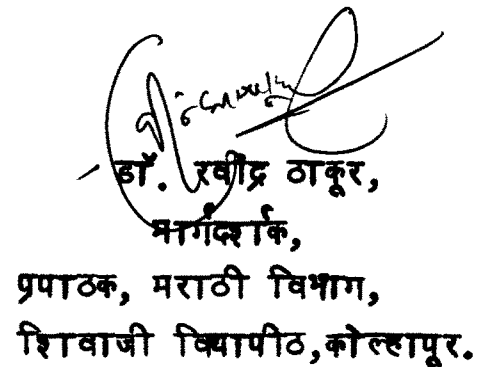 डॉ. रवींद्र ठाकूर,
मार्गदर्शक,
प्रपाठक, मराठी विभाग,
शिवाजी विद्यापीठ,कोल्हापूर.